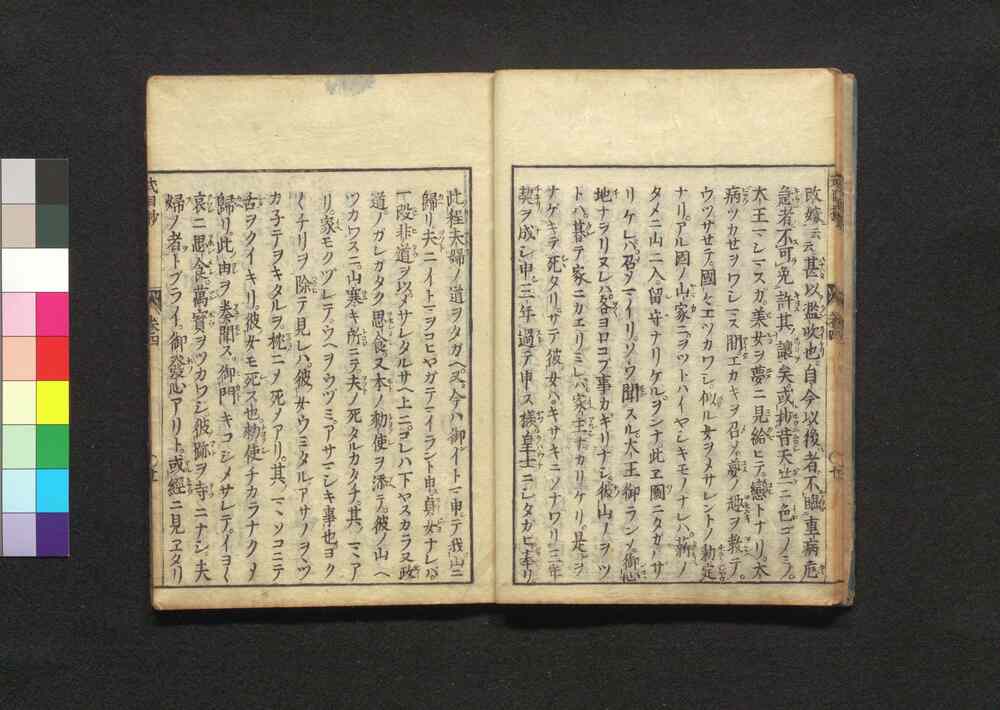 改嫁云云甚以濫吹也自今以後者不臨重病危
急者不可免許其讓矣或抄昔天竺ニ色ゴノミ
大王マシマスカ美女ヲ夢ニ見給ヒテ戀トナリ太
病ツカせヲワシマス間エカキヲ召メ夢ノ趣ヲ教テ
ウツサせテ國々エツカワシ似ル女ヲメサレントノ勅定
ナリアル國ノ山家ニヲツトハイヤシキモノナレハ薪ノ
タメニ山ニ入留守ナリケルヲンナ此ヱ圖ニタカハサ
リケレハ召メマイリソウ聞スル大王御ランメ御心
地ナヲリ又レハ各ヨロコブ事カギリナシ彼山ノヲツ
トハ暮テ家ニカエリミレハ家主ナカリケリ是ヲ
ナゲキテ死タリサテ彼女ハキサキニソナワリ三年
契ヲ成シ申三年過テ申ス樣皇士ニシタガヒ奉リ
此程夫婦ノ道ヲタガヘ又今ハ御イトマ申テ我山ニ
歸リ夫ニイトマヲコヒヤガテマイラント申貞女ナレハ
一段非道ヲ以メサレタルサヘ上ニコレハ下ヤスカラヌ政
道ノガレガタク思食又本ノ勅使ヲ添テ彼ノ山ヘ
ツカワスニ山寒キ所ニテ夫ノ死タルカタチ其マヽア
リ家モクヅレテウヘヲウヅミアサマシキ事也ヨク
〱チリヲ除テ見レハ彼女ウミタルアサノヲミツ
カ子テヲキタルヲ枕ニメ死メアリ其マヽソコニテ
舌ヲクイキリ彼女モ死ス也勅使チカラナクメ
歸リ此由ヲ奏聞ス御門キコシメサレテイヨ〱
哀ニ思食萬寶ヲツカワシ彼跡ヲ寺ニナシ夫
婦ノ者トブライ御發心アリト或經ニ見ヱタリ
卷四